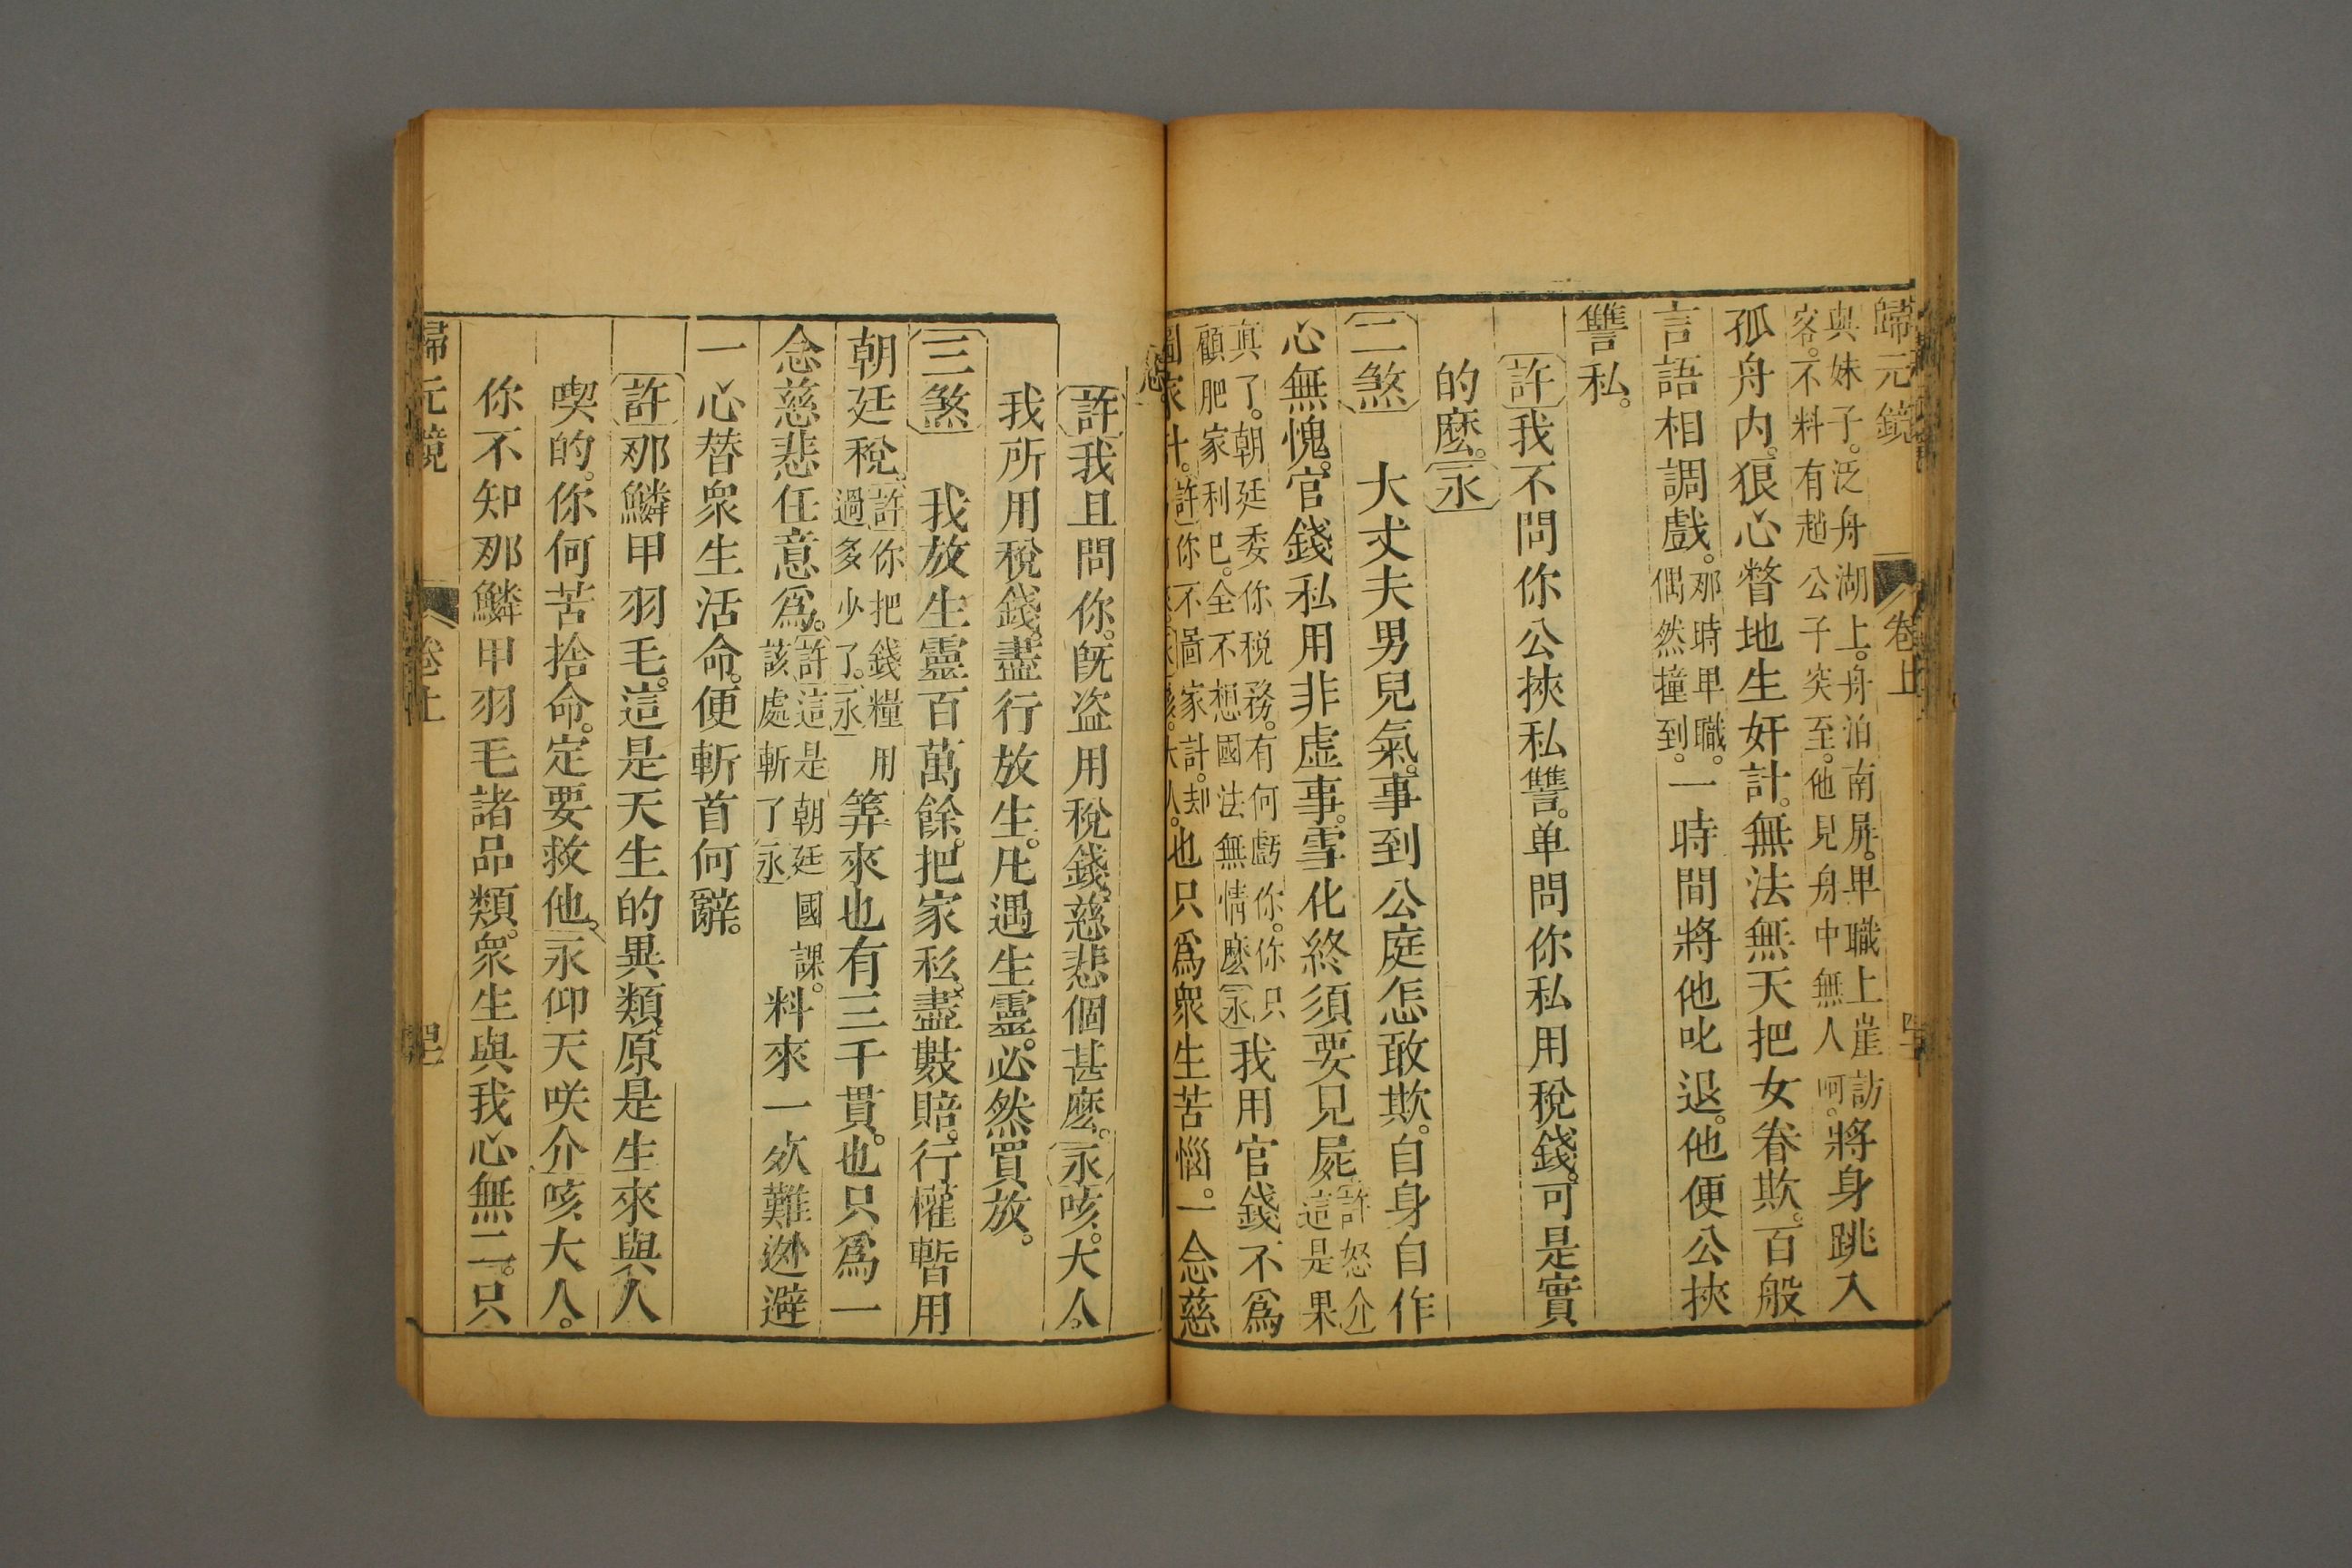 歸元鏡 卷上
與妹子。泛舟湖上。舟泊南屏。卑職上崖訪
客。不料有趙公子突至。他見舟中無人呵。將身跳入
孤舟内。狠心瞥地生奸計。無法無天把女眷欺。百般
言語相調戲。那時卑職。偶然撞到。一時間將他叱退。他便公挾
讐私。
許我不問你公挾私讐。单問你私用稅錢。可是實
的麽。永
二煞 大丈夫男兒氣。事到公庭怎敢欺。自身自作
心無愧。官錢私用非虚事。雪化終須要見屍許怒介這是果
真了。朝廷委你稅務。有何虧你。你只
顧肥家利巳。全不想國法無情麽永我用官錢不爲
家計。許你不圖家計。却也只爲衆生苦惱。一念慈
悲。
許我且問你。旣盗用稅錢。慈悲個甚麽。永咳。大人。
我所用稅錢。盡行放生。凡遇生靈。必然買放。
三煞 我放生靈百萬餘。把家私。盡數賠。行權暫用
朝廷稅許你把錢糧用過多少了。永筭來也有三千貫。也只爲一
念慈悲任意爲。許這是朝廷國課。該處斬了永料來一死難逃避
一心替衆生活命。便斬首何辭。
許那鱗甲羽毛。這是天生的異類。原是生來與人
喫的。你何苦捨命。定要救他。永仰天咲介咳。大人。
你不知那鱗甲羽毛諸品類。衆生與我心無二。只
歸元鏡 卷上